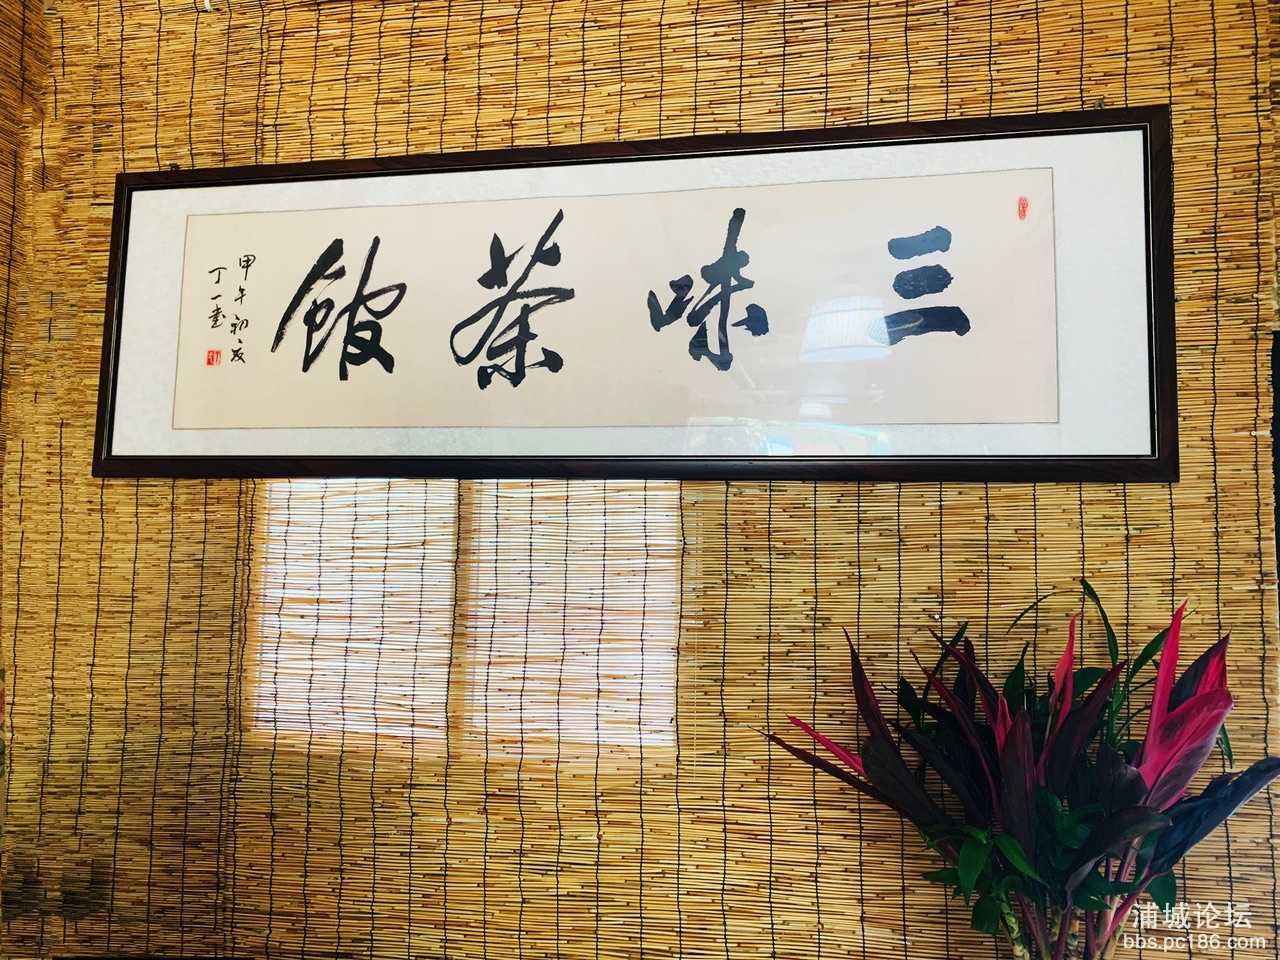 三味茶館
甲午初夏
丁一書
浦城论坛
bbs.pc186.com